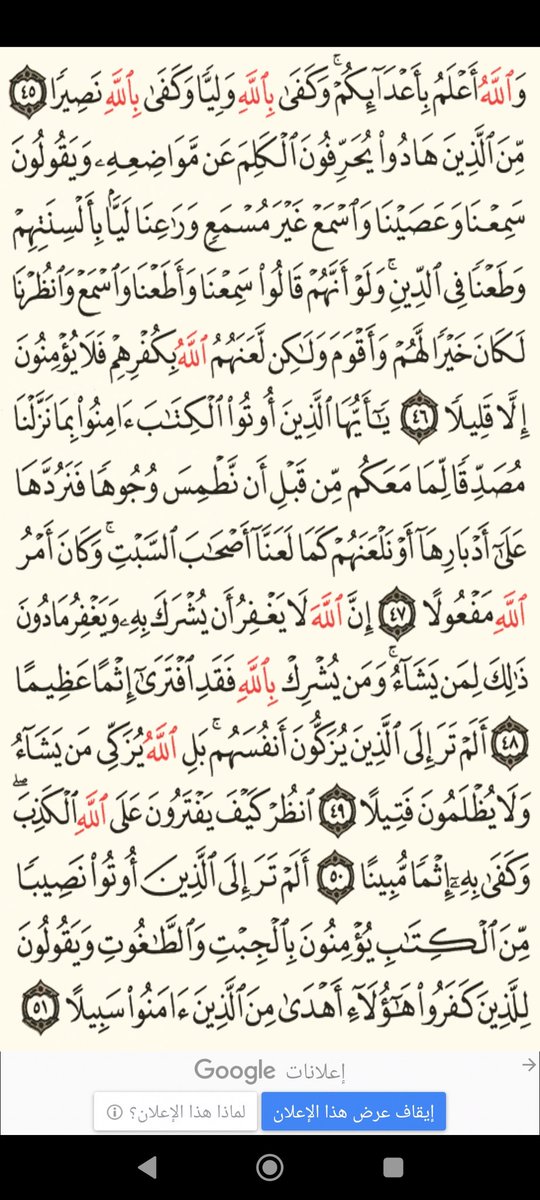 وَٱللَّهُ أَعۡلَمُ بِأَعۡدَآئِكُمۡۚ وَكَفَىٰ بِٱللَّهِ وَلِيّٗا وَكَفَىٰ بِٱللَّهِ نَصِيرٗا ٤٥
مِّنَ ٱلَّذِينَ هَادُواْ يُحَرِّفُونَ ٱلۡكَلِمَ عَن مَّوَاضِعِهِۦ وَيَقُولُونَ
سَمِعۡنَا وَعَصَيۡنَا وَٱسۡمَعۡ غَيۡرَ مُسۡمَعٖ وَرَٰعِنَا لَيَّۢا بِأَلۡسِنَتِهِمۡ
وَطَعۡنٗا فِي ٱلدِّينِۚ وَلَوۡ أَنَّهُمۡ قَالُواْ سَمِعۡنَا وَأَطَعۡنَا وَٱسۡمَعۡ وَٱنظُرۡنَا
لَكَانَ خَيۡرٗا لَّهُمۡ وَأَقۡوَمَ وَلَٰكِن لَّعَنَهُمُ ٱللَّهُ بِكُفۡرِهِمۡ فَلَا يُؤۡمِنُونَ
إِلَّا قَلِيلٗا ٤٦ يَٰٓأَيُّهَا ٱلَّذِينَ أُوتُواْ ٱلۡكِتَٰبَ ءَامِنُواْ بِمَا نَزَّلۡنَا
مُصَدِّقٗا لِّمَا مَعَكُم مِّن قَبۡلِ أَن نَّطۡمِسَ وُجُوهٗا فَنَرُدَّهَا
عَلَىٰٓ أَدۡبَارِهَآ أَوۡ نَلۡعَنَهُمۡ كَمَا لَعَنَّآ أَصۡحَٰبَ ٱلسَّبۡتِۚ وَكَانَ أَمۡرُ
ٱللَّهِ مَفۡعُولًا ٤٧ إِنَّ ٱللَّهَ لَا يَغۡفِرُ أَن يُشۡرَكَ بِهِۦ وَيَغۡفِرُ مَا دُونَ
ذَٰلِكَ لِمَن يَشَآءُۚ وَمَن يُشۡرِكۡ بِٱللَّهِ فَقَدِ ٱفۡتَرَىٰٓ إِثۡمًا عَظِيمًا
٤٨ أَلَمۡ تَرَ إِلَى ٱلَّذِينَ يُزَكُّونَ أَنفُسَهُمۚ بَلِ ٱللَّهُ يُزَكِّي مَن يَشَآءُ
وَلَا يُظۡلَمُونَ فَتِيلًا ٤٩ ٱنظُرۡ كَيۡفَ يَفۡتَرُونَ عَلَى ٱللَّهِ ٱلۡكَذِبَۖ
وَكَفَىٰ بِهِۦٓ إِثۡمٗا مُّبِينًا ٥٠ أَلَمۡ تَرَ إِلَى ٱلَّذِينَ أُوتُواْ نَصِيبٗا
مِّنَ ٱلۡكِتَٰبِ يُؤۡمِنُونَ بِٱلۡجِبۡتِ وَٱلطَّٰغُوتِ وَيَقُولُونَ
لِلَّذِينَ كَفَرُواْ هَٰٓؤُلَآءِ أَهۡدَىٰ مِنَ ٱلَّذِينَ ءَامَنُواْ سَبِيلًا ٥١
إعلانات Google
إيقاف عرض هذا الإعلان لماذا هذا الإعلان؟